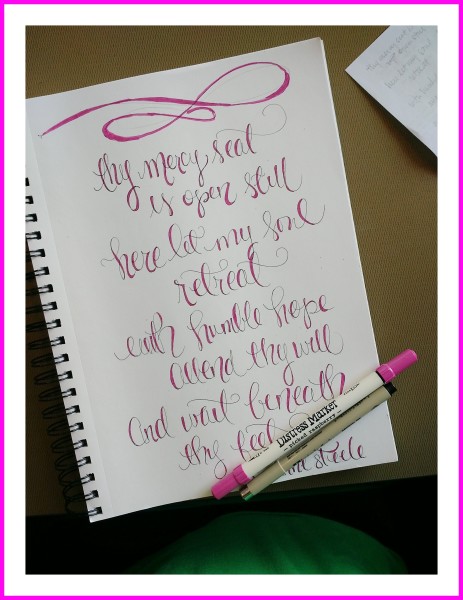 thy mercy seat
is open still
here let my soul
retreat
with humble hope
attend thy will
And wait beneath
thy feet
steele
Distress Marker
picked raspberry